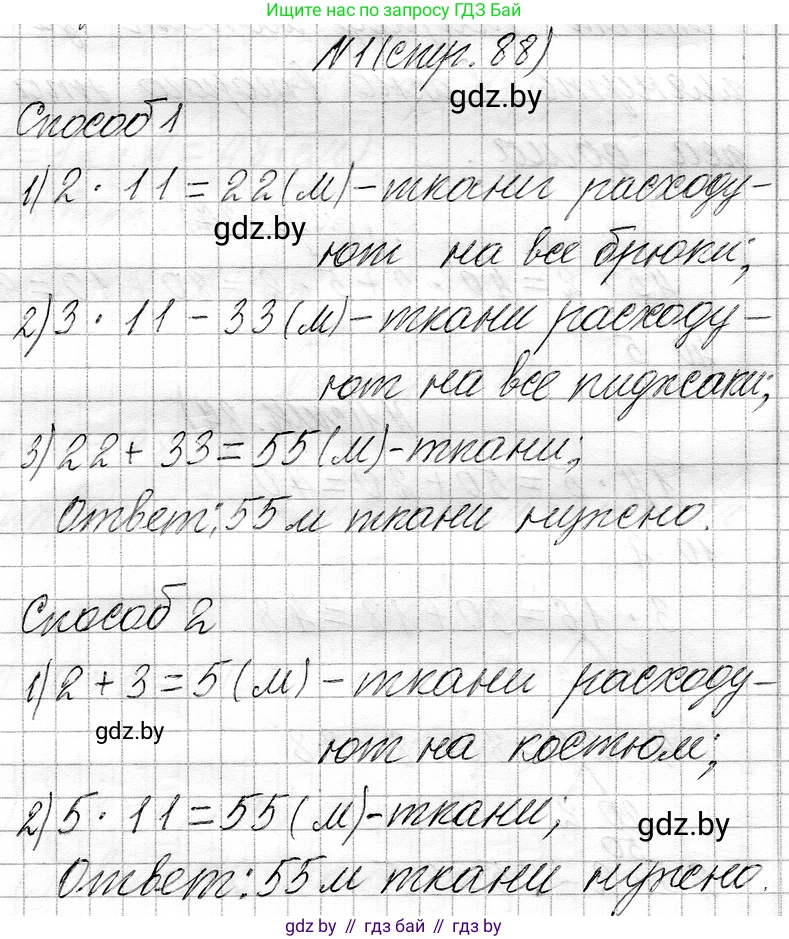 Ищите нас по запросу ГДЗ Бай
№1(стр. 88)
gdz.by
Способ 1
1) 2 · 11 = 22(м) - ткани расходу-
gdz.by
ют на все брюки;
2) 3 · 11 - 33(м) - ткани расходу-
ют на все пиджаки;
3) 22 + 33 = 55(м) - ткани;
Ответ: 55 м ткани нужно.
Способ 2
1) 2 + 3 = 5(м) - ткани расходу-
gdz.by
ют на костюм;
2) 5 · 11 = 55(м) - ткани;
gdz.by
Ответ: 55 м ткани нужно.
gdz.by // гдз бай // gdz.by